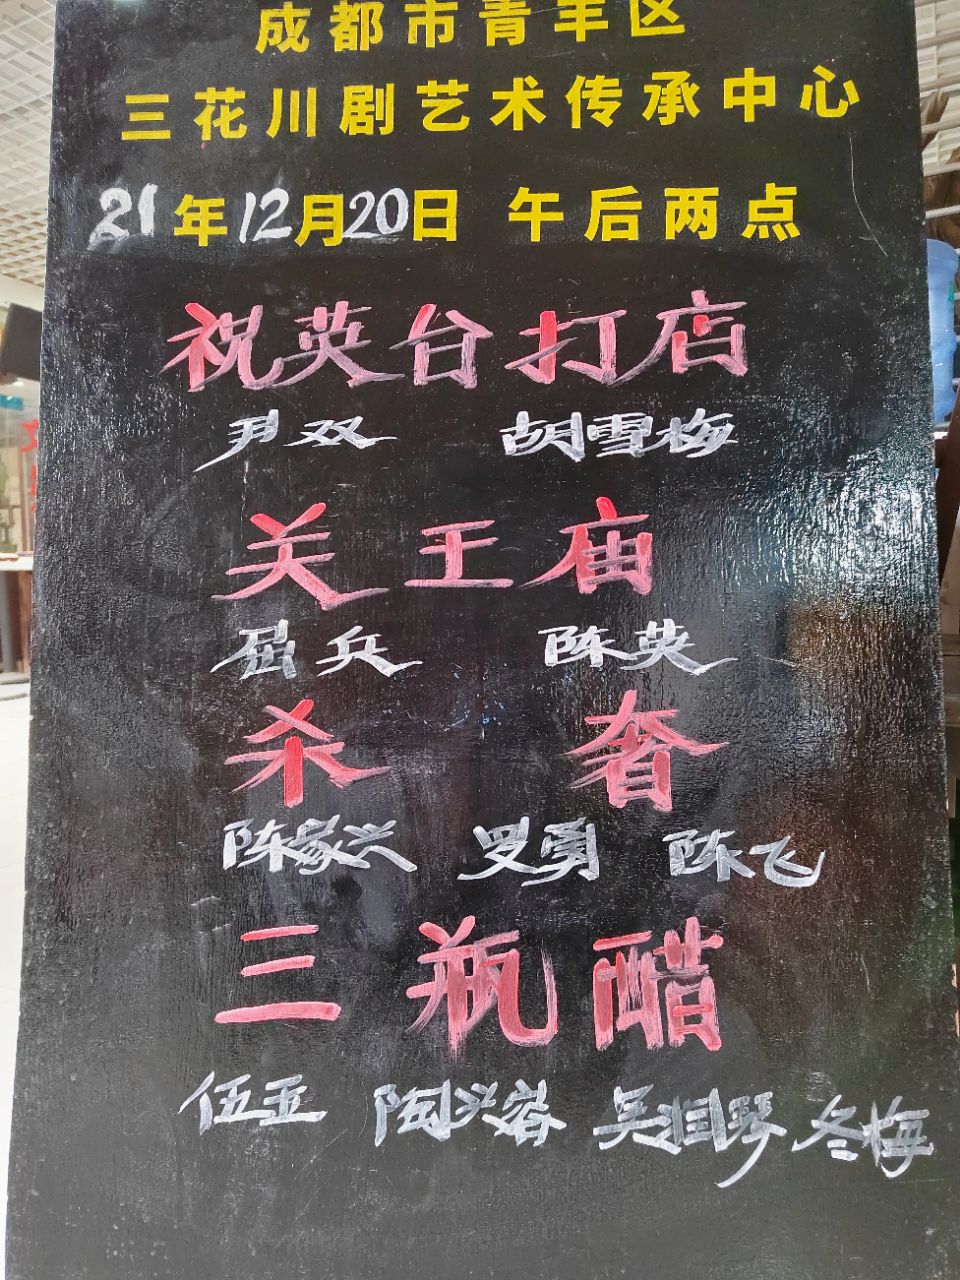 成都市青羊区
三花川剧艺术传承中心
21年12月20日 午后两点
祝英台打店
尹双 胡雪梅
关王庙
屈兵 陈英
杀奢
陈家兴 罗勇 陈飞
三瓶醋
伍亚 陶兴蓉 吴润琴 冬梅